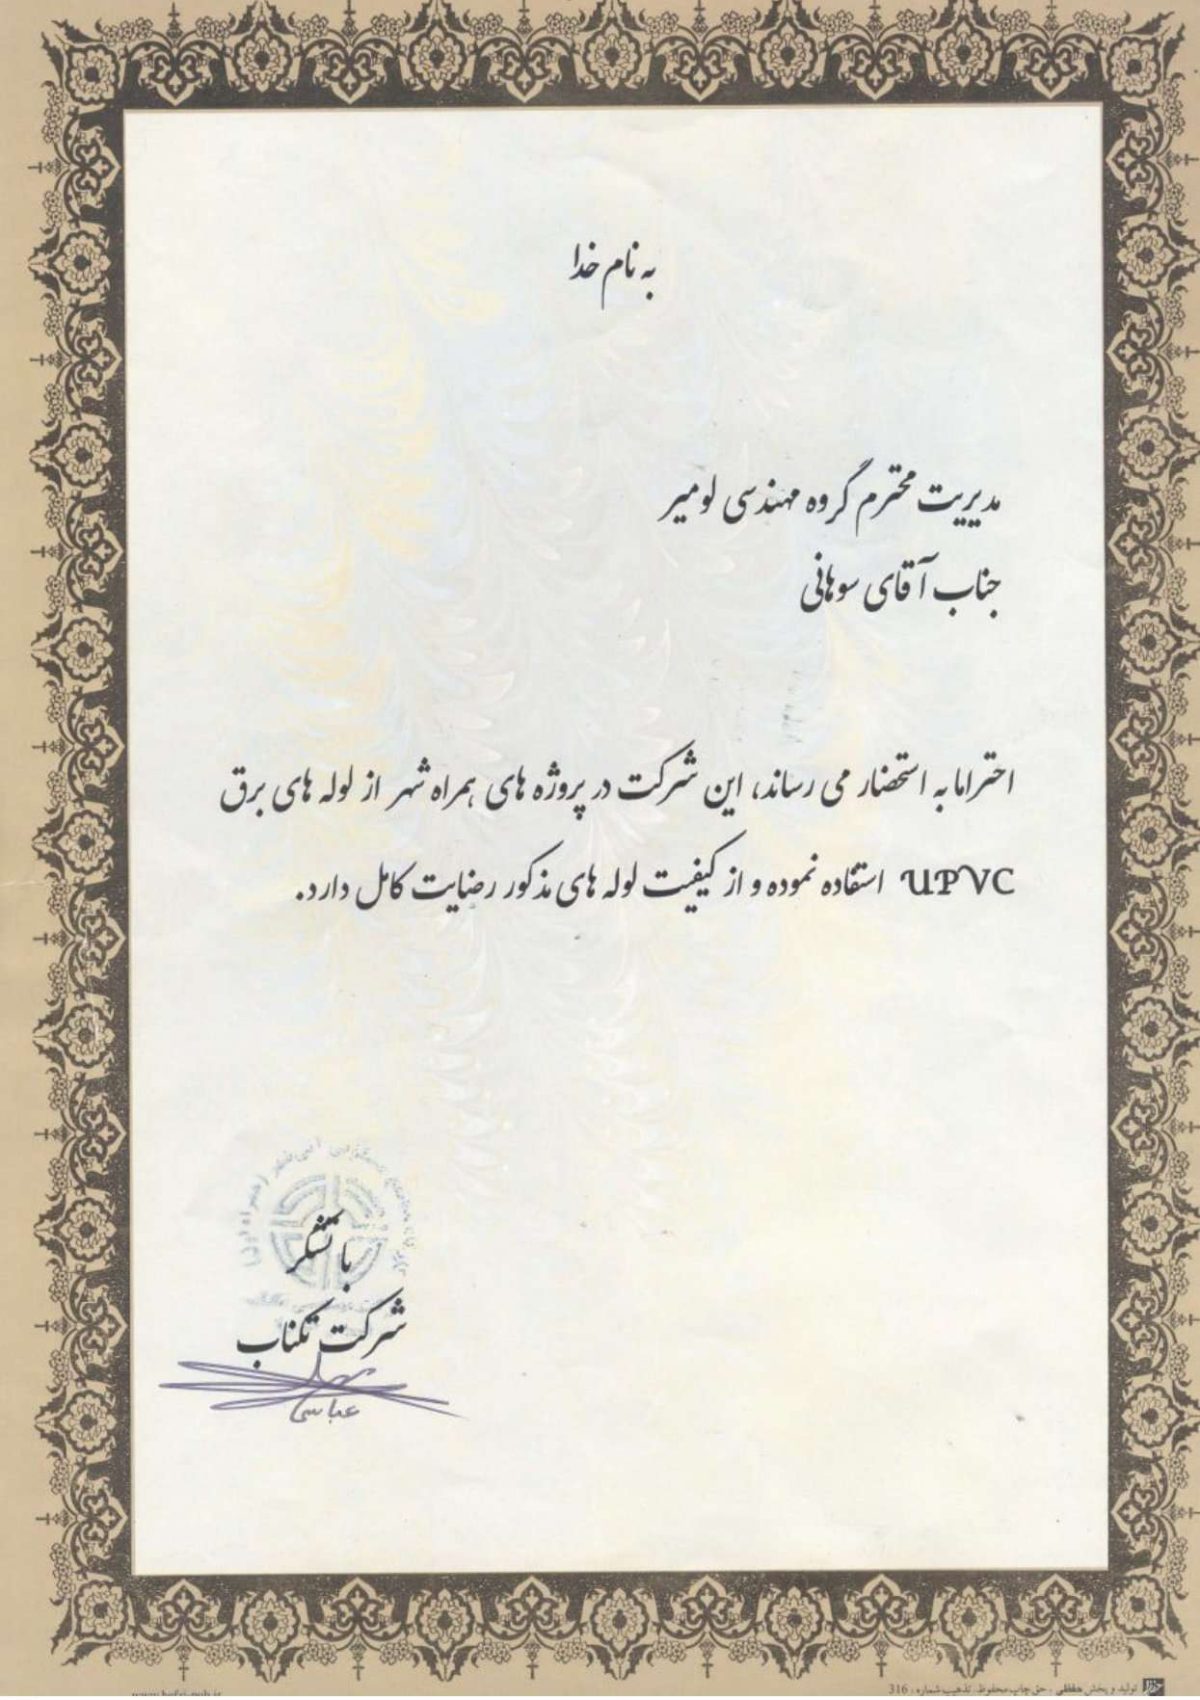 به نام خدا
مدیریت محترم گروه مهندسی لومیر
جناب آقای سوهانی
احتراما به استحضار می رساند، این شرکت در پروژه های همراه شهر از لوله های برق
UPVC استفاده نموده و از کیفیت لوله های مذکور رضایت کامل دارد.
با تشکر
شرکت تکناب
عباسی
تولید و پخش حفظی - حق چاپ محفوظ. تذهیب شماره: 316